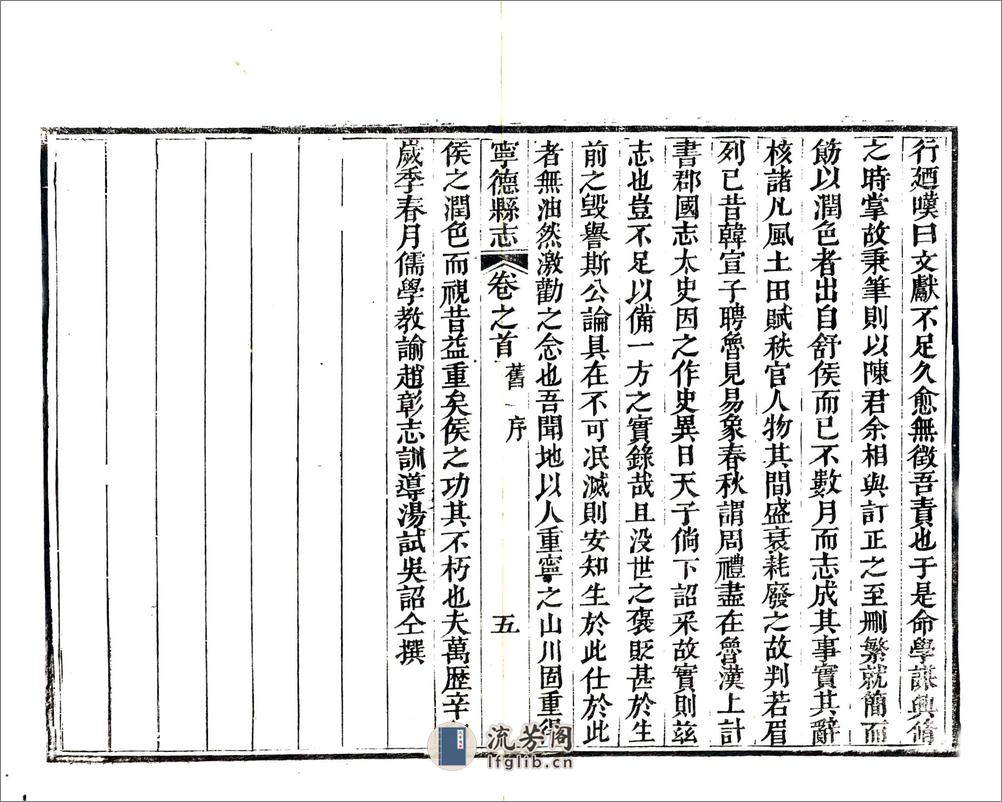 行廼嘆曰文獻不足久愈無徵吾責也于是命學謀興脩
之時掌故秉筆則以陳君余相與訂正之至刪繁就簡而
飾以潤色者出自舒侯而已不數月而志成其事實其辭
核諸凡風土田賦秩官人物其間盛衰耗廢之故判若眉
列已昔韓宣子聘魯見易象春秋謂周禮盡在魯漢上計
書郡國志太史因之作史異日天子倘下詔采故實則兹
志也豈不足以備一方之實錄哉且没世之褒貶甚於生
前之毀譽斯公論具在不可泯滅則安知生於此仕於此
者無油然激勸之念也吾聞地以人重寧之山川固重得
寧德縣志 卷之首 舊序 五
侯之潤色而視昔益重矣侯之功其不朽也夫萬歷辛
歲季春月儒學教諭趙彰志訓導湯試吳詔仝撰
流芳阁
lfglib.cn